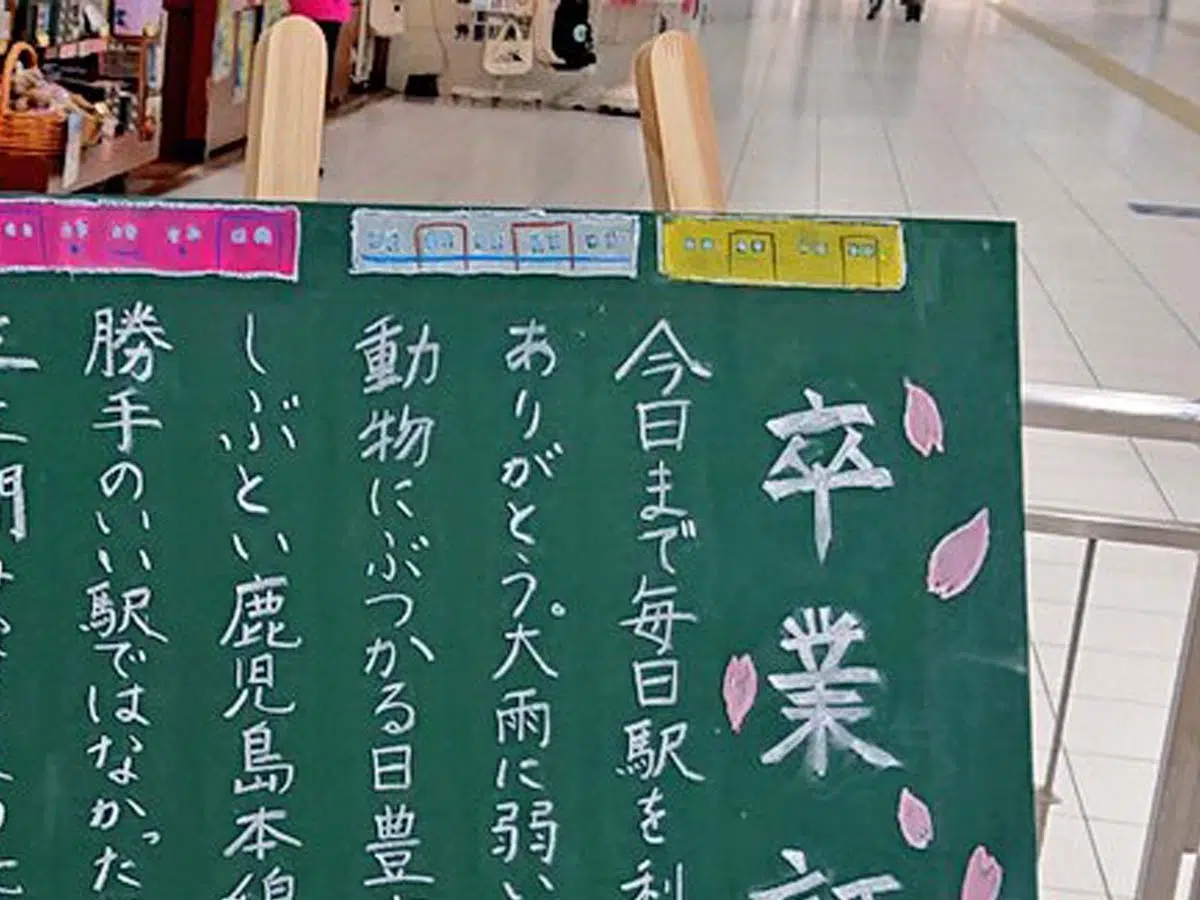 卒業
今日まで毎日駅を利
ありがとう。大雨に弱い
動物にぶつかる日豊
しぶとい鹿児島本線
勝手のいい駅ではなかった